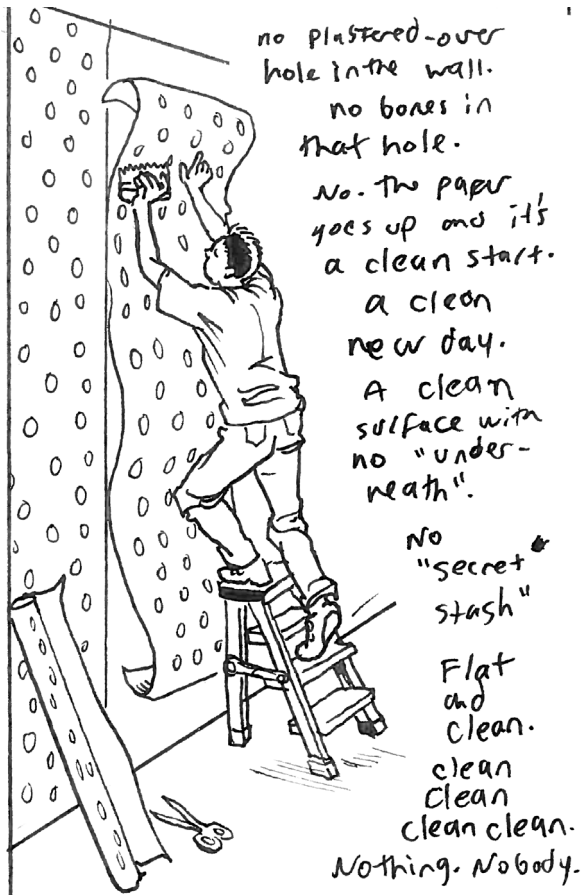 no plastered-over
hole in the wall.
no bones in
that hole.
No. the paper
goes up and it's
a clean start.
a clean
new day.
A clean
surface with
no "under-
neath".
No
"secret
stash"
Flat
and
clean.
clean
clean
clean clean.
Nothing. Nobody.